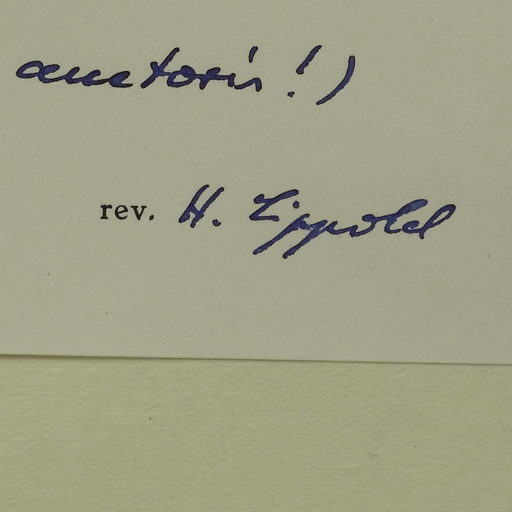 auctoris!)
rev. H. Lippold